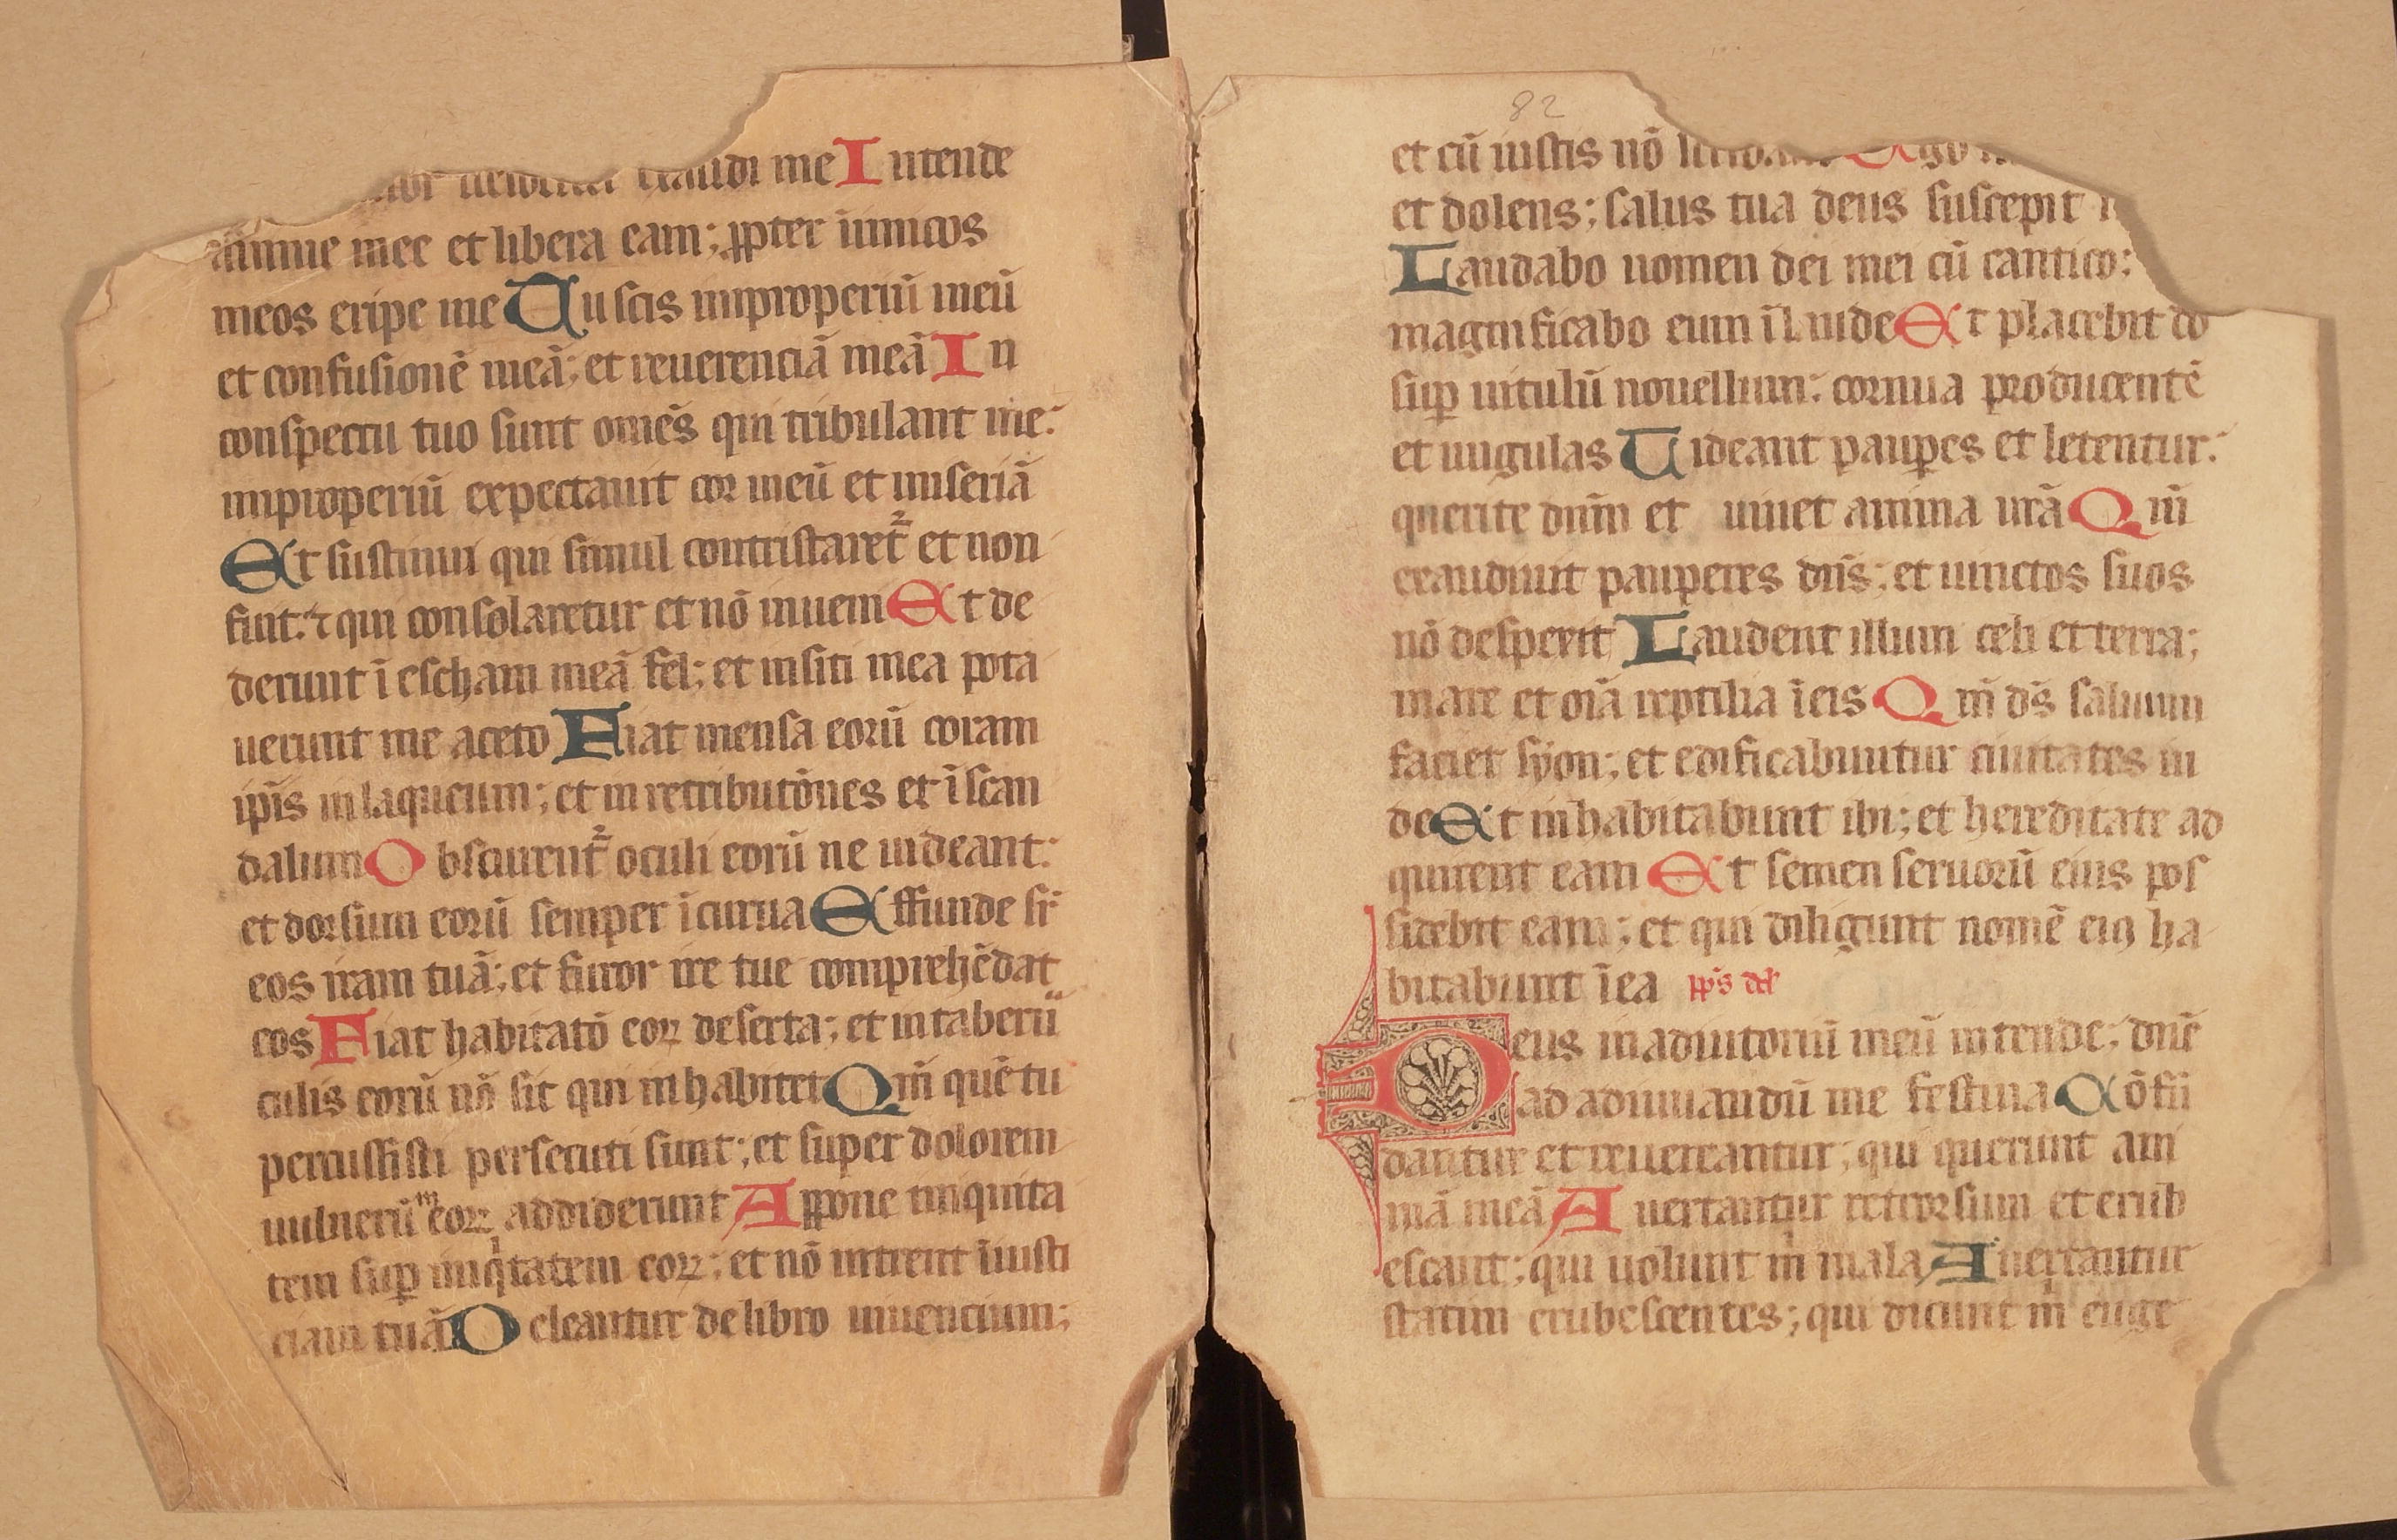 exaudi me Intende
anime mee et libera eam; ꝓpter inimicos
meos eripe me Tu scis improperiū meū
et confusionē meā; et reuerenciā meā In
conspectu tuo sunt om̄es qui tribulant me:
improperiū expectauit cor meū et miseriā
Et sustinui qui simul contristaret᷑ et non
fuit: ⁊ qui consolaretur et nō inueni Et de
derunt ī escham meā fel; et in siti mea pota
uerunt me aceto Fiat mensa eorū coram
ip̄is in laqueum; et in retributōnes et ī scan
dalum Obscurent᷑ oculi eorū ne uideant:
et dorsum eorū semper īcurua Effunde sr̄
eos iram tuā; et furor ire tue comprehēdat
eos Fiat habitatō eoꝝ deserta; et in taberū
culis eorū nō sit qui inhabitet Qm̄ quē tu
percussisti persecuti sunt; et super dolorem
uulnerū eoꝝ addiderunt Aꝑpone iniquita
tem suꝑ iniqͥtatem eoꝝ; et nō intrent ī iusti
ciam tuā Deleantur de libro uiuencium;
82
et cū iustis nō scribant Ego
et dolens; salus tua deus suscepit
Laudabo nomen dei mei cū cantico:
magnificabo eum ī laude Et placebit do
suꝑ uitulū nouellum: cornua producentē
et ungulas Uideant pauꝑes et letentur:
querite dn̄m et uiuet anima ur̄a Qm̄
exaudiuit pauperes dn̄s; et uinctos suos
nō despexit Laudent illum celi et terra;
mare et oīa reptilia ī eis Qm̄ ds̄ saluam
faciet syon; et edificabuntur ciuitates iu
de Et inhabitabunt ibi; et hereditate ad
quirent eam Et semen seruorū eius pos
sidebit eam; et qui diligunt nomē eiꝰ ha
bitabunt ī ea
Deus in adiutoriū meū intende; dn̄e
ad adiuuandū me festina Cōfū
dantur et reuereantur; qui querunt ani
mā meā Auertantur retrorsum et erub
escant; qui uolunt m̄ mala Auertantur
statim erubescentes; qui dicunt m̄ euge